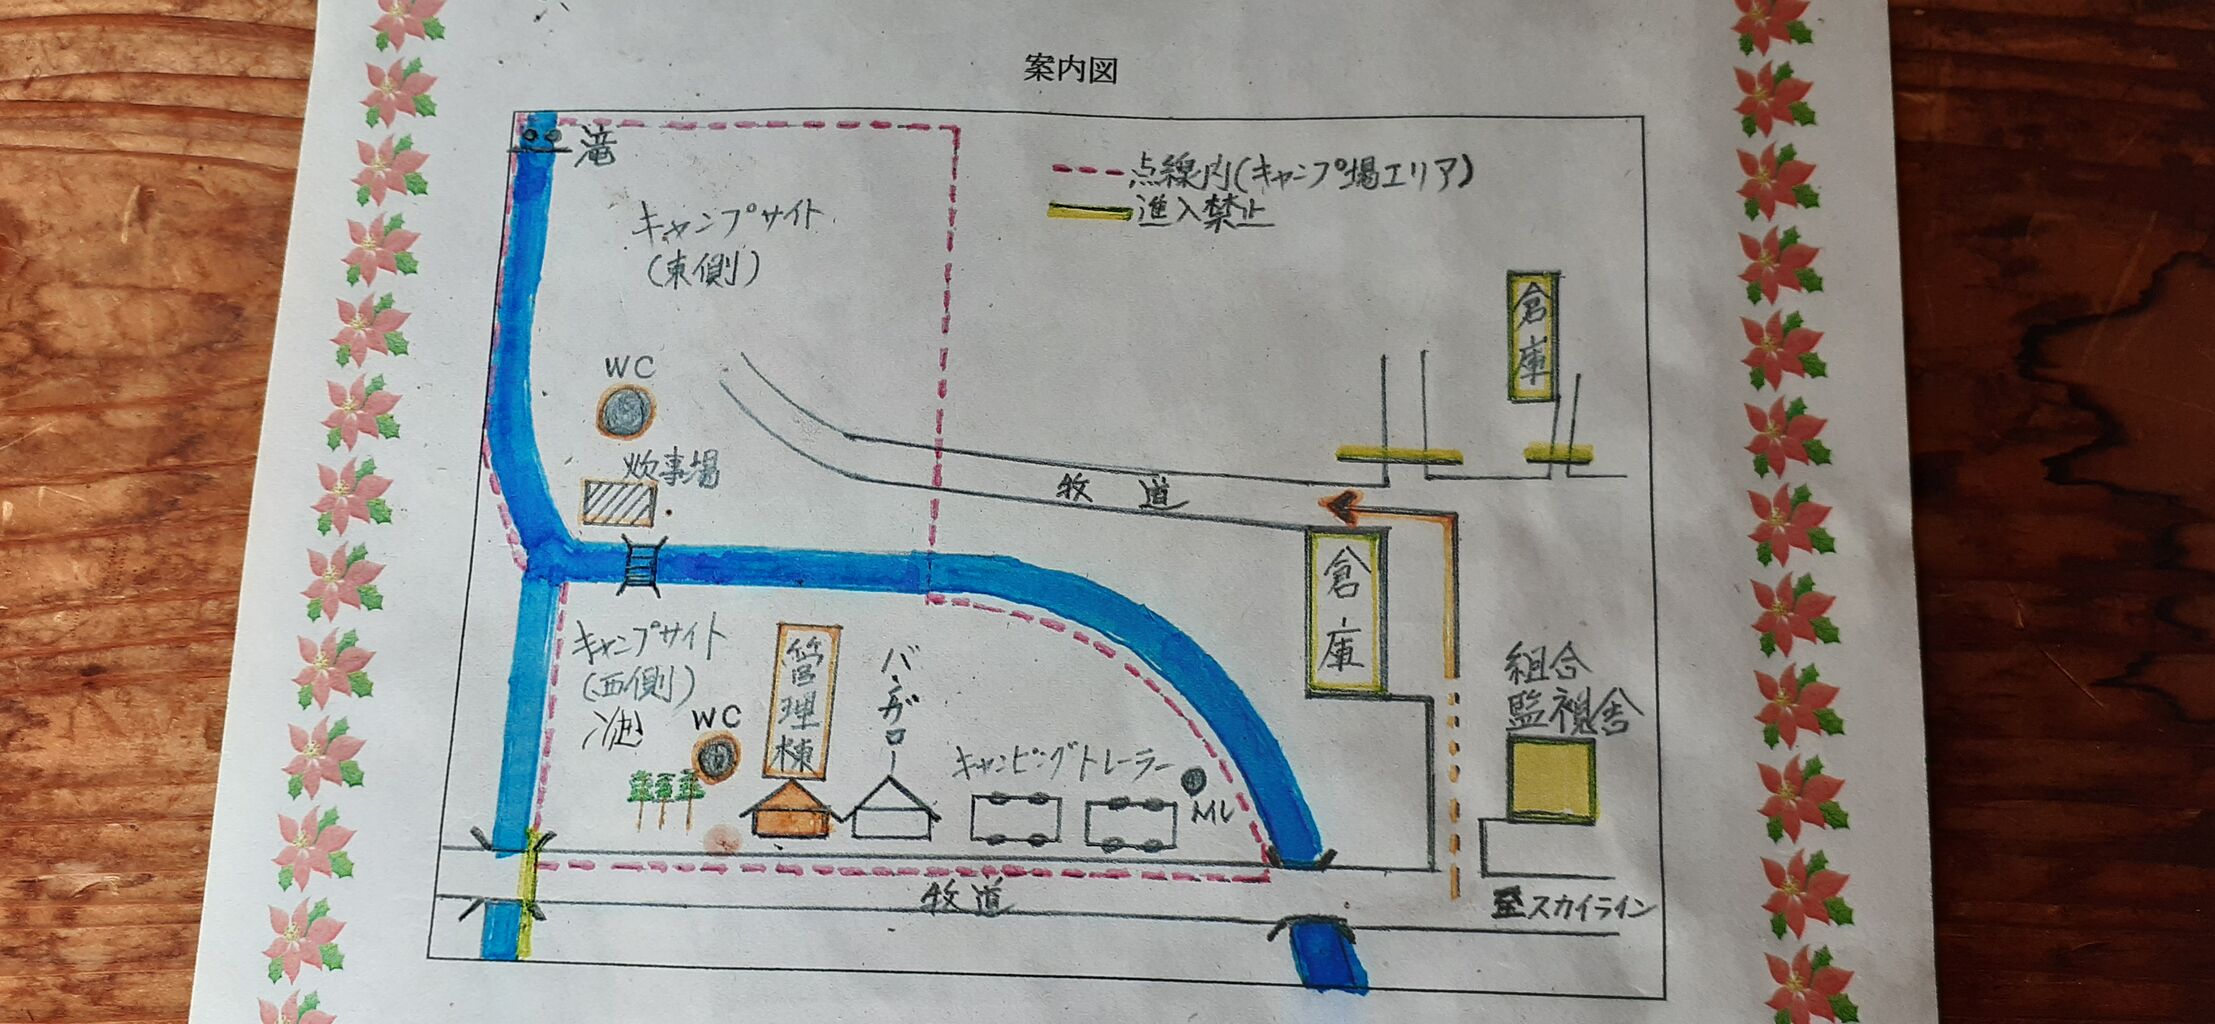 案内図
滝
点線内(キャンプ場エリア)
進入禁止
キャンプサイト
(東側)
倉庫
WC
炊事場
牧道
倉庫
キャンプサイト
(西側)
WC
管理棟
バンガロー
キャンピングトレーラー
組合
監視舎
牧道
至スカイライン